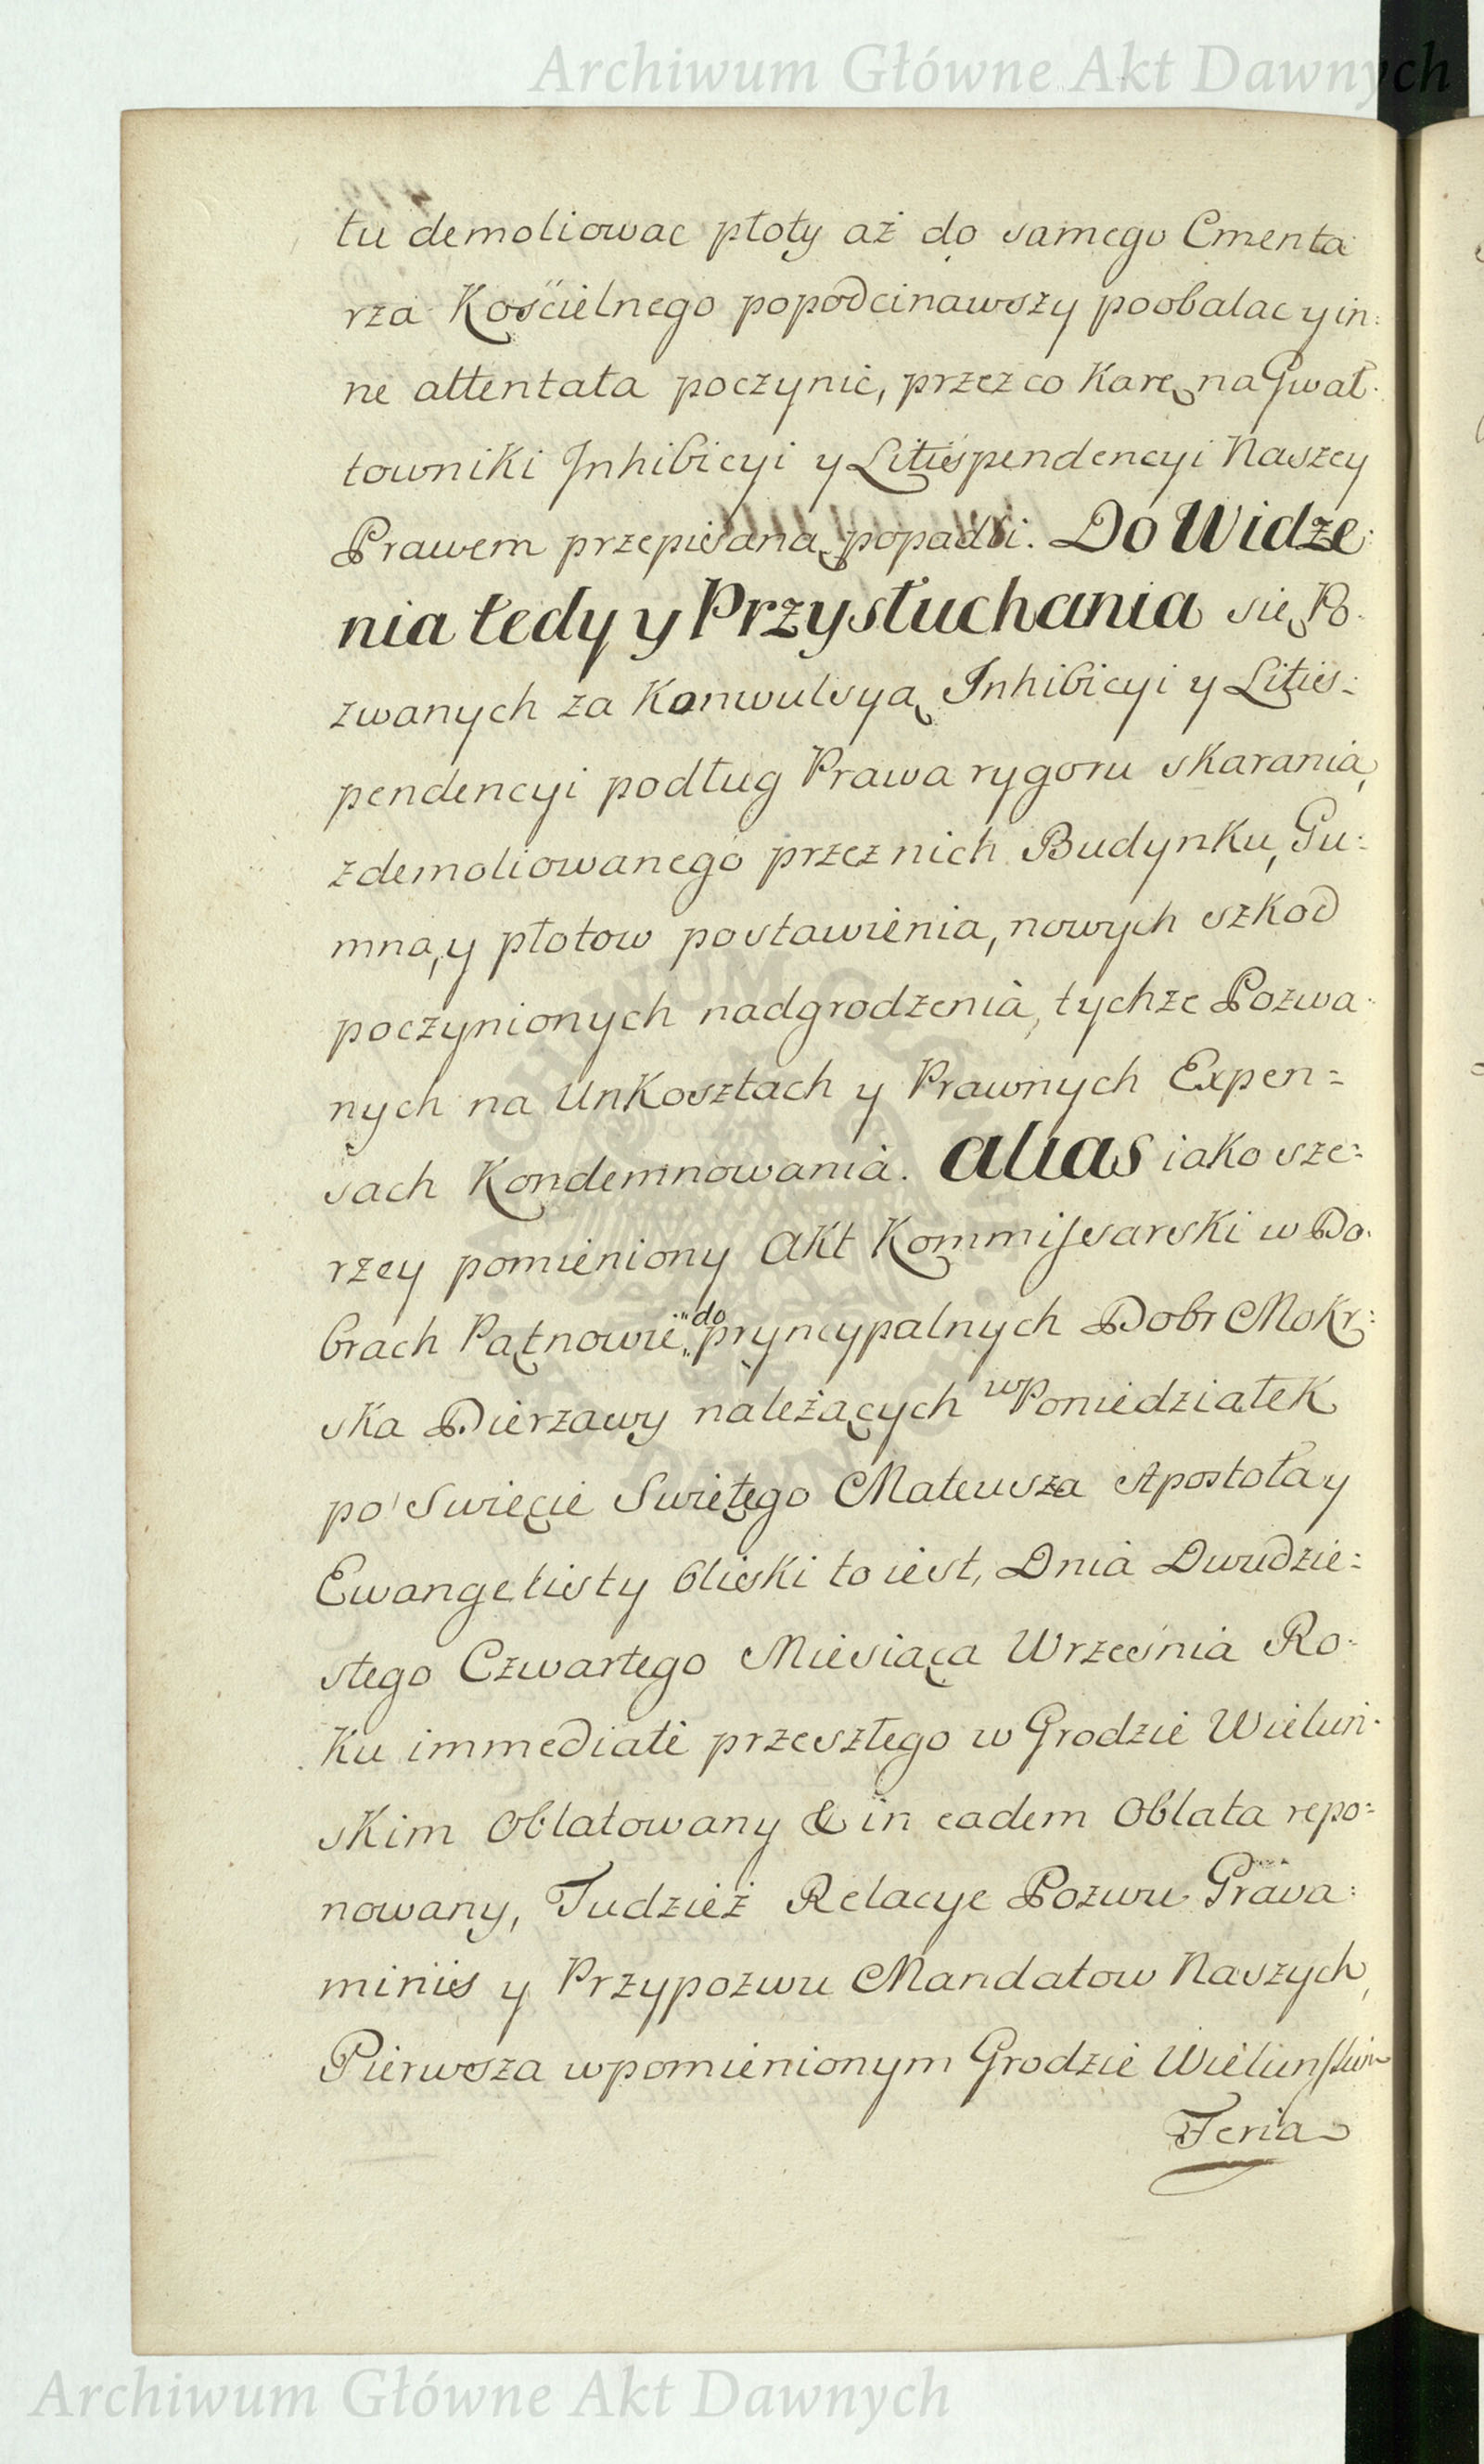 Archiwum Główne Akt Dawnych
tu demoliowac płoty aż do samego Cmenta
rza Kościelnego popodcinawszy poobalac y in:
ne attentata poczynić, przez co Karę na Gwał:
towniki Inhibicyi y Litispendencyi Naszey
Prawem przepisaną popadli. Do Widze:
nia tedy y Przysłuchania się Po:
zwanych za Konwulsyą Inhibicyi y Litis:
pendencyi podług Prawa rygoru skarania,
zdemoliowanego przez nich Budynku, Gu:
mna, y płotow postawienia, nowych szkod
poczynionych nadgrodzenia, tychże Pozwa:
nych na Unkosztach y Prawnych Expen:
sach Kondemnowania. alias iako sze:
rzey pomieniony Akt Kommissarski w Do:
brach Pątnowie do pryncypalnych Dobr Mokr:
ska Dierzawy należących w Poniedziałek
po Swięcie Swiętego Mateusza Apostoła y
Ewangelisty bliski to iest, Dnia Dwudzie:
stego Czwartego Miesiąca Września Ro:
ku immediate przeszłego w Grodzie Wielun:
skim Oblatowany & in eadem Oblata repo:
nowany, Tudzież Relacye Pozwu Grava:
minis y Przypozwu Mandatow Naszych,
Pierwsza w pomienionym Grodzie Wielunskim
Feria
Archiwum Główne Akt Dawnych